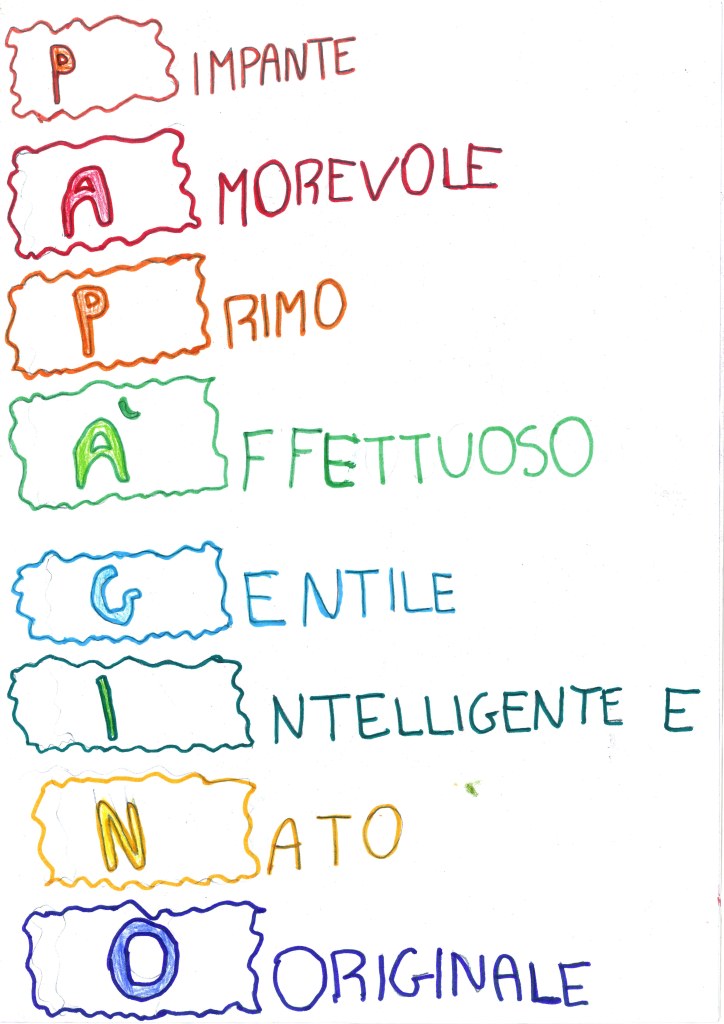 PIMPANTE
AMOREVOLE
PRIMO
ÀFFETTUOSO
GENTILE
INTELLIGENTE E
NATO
OORIGINALE